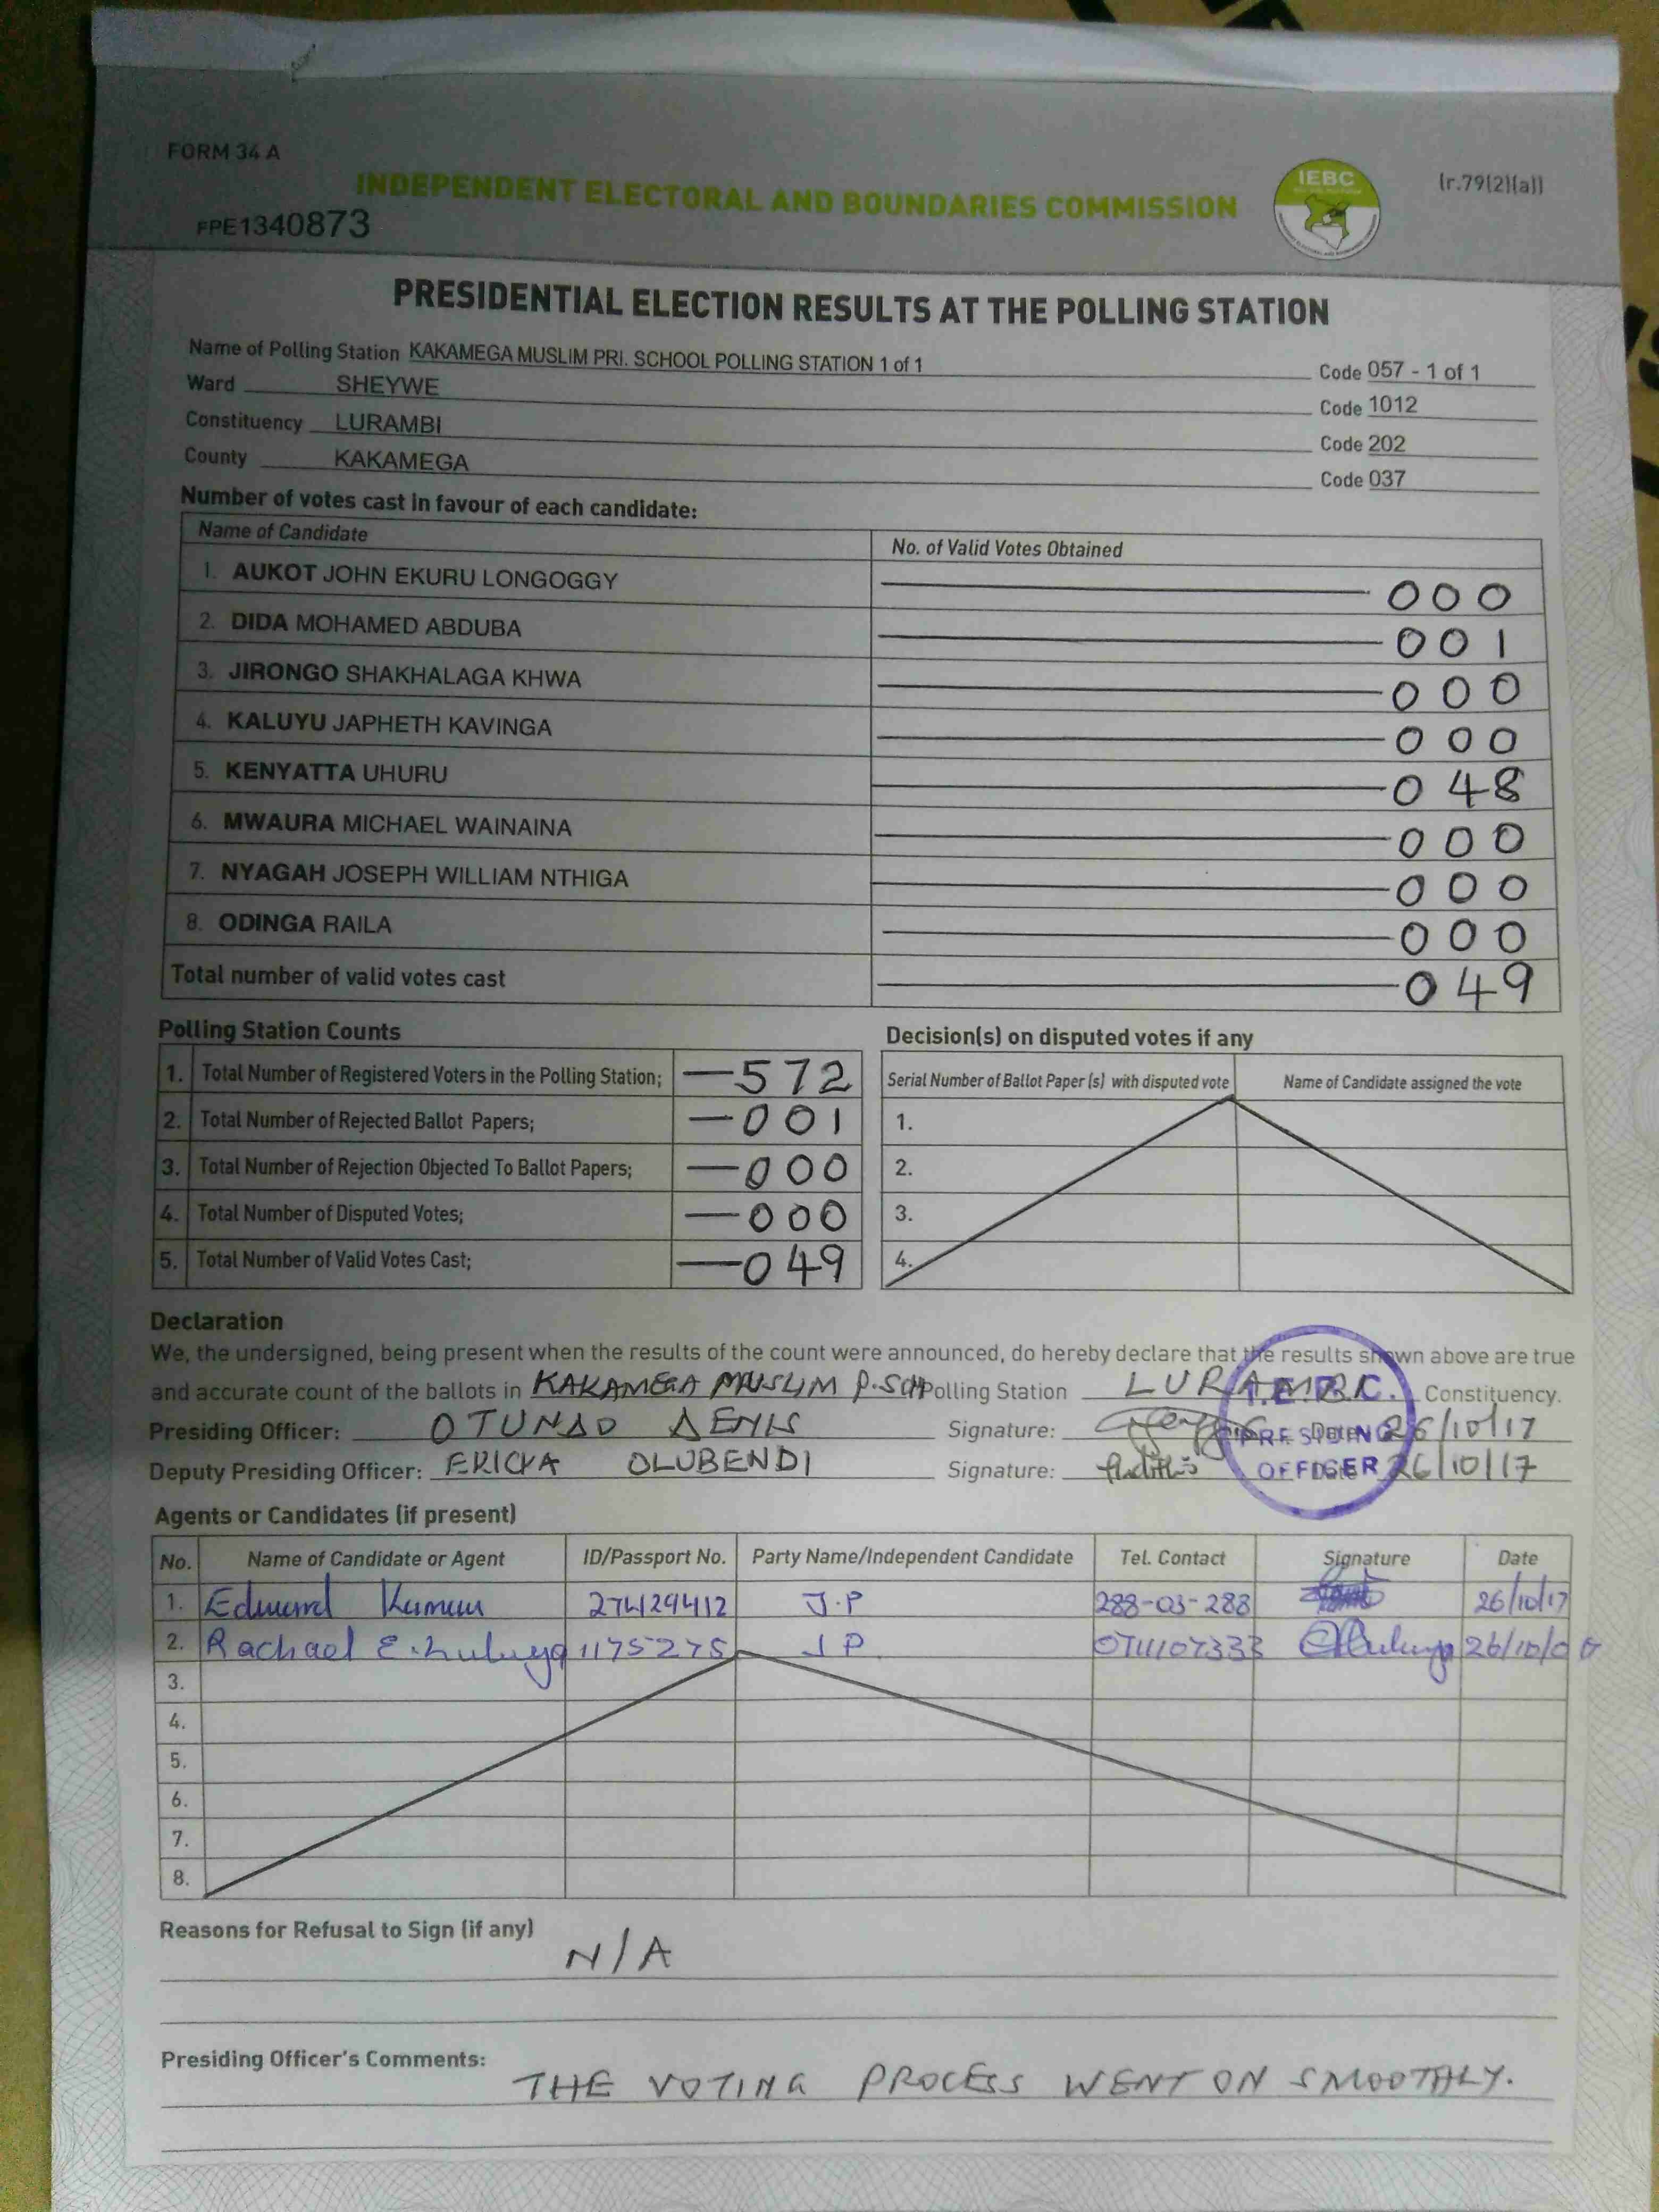 FORM 34 A
INDEPENDENT ELECTORAL AND BOUNDARIES COMMISSION
IEBC
(r.79(2)(a))
FPE1340873
PRESIDENTIAL ELECTION RESULTS AT THE POLLING STATION
Name of Polling Station KAKAMEGA MUSLIM PRI. SCHOOL POLLING STATION 1 of 1 Code 057 - 1 of 1
Ward SHEYWE Code 1012
Constituency LURAMBI Code 202
County KAKAMEGA Code 037
Number of votes cast in favour of each candidate:
Name of Candidate No. of Valid Votes Obtained
1. AUKOT JOHN EKURU LONGOGGY 000
2. DIDA MOHAMED ABDUBA 001
3. JIRONGO SHAKHALAGA KHWA 000
4. KALUYU JAPHETH KAVINGA 000
5. KENYATTA UHURU 048
6. MWAURA MICHAEL WAINAINA 000
7. NYAGAH JOSEPH WILLIAM NTHIGA 000
8. ODINGA RAILA 000
Total number of valid votes cast 049
Polling Station Counts
1. Total Number of Registered Voters in the Polling Station; 572
2. Total Number of Rejected Ballot Papers; 001
3. Total Number of Rejection Objected To Ballot Papers; 000
4. Total Number of Disputed Votes; 000
5. Total Number of Valid Votes Cast; 049
Decision(s) on disputed votes if any
Serial Number of Ballot Paper (s) with disputed vote Name of Candidate assigned the vote
1.
2.
3.
4.
Declaration
We, the undersigned, being present when the results of the count were announced, do hereby declare that the results shown above are true
and accurate count of the ballots in KAKAMEGA MUSLIM P.SCH Polling Station LURAMBI Constituency.
Presiding Officer: OTUNDO DENIS Signature: Date: 26/10/17
Deputy Presiding Officer: ERICKA OLUBENDI Signature: Date: 26/10/17
I.E.B.C.
PRESIDING
OFFICER
Agents or Candidates (if present)
No. Name of Candidate or Agent ID/Passport No. Party Name/Independent Candidate Tel. Contact Signature Date
1. Edward 27429412 J.P 288-03-288 26/10/17
2. Rachael E. 1175275 J P 26/10/
3.
4.
5.
6.
7.
8.
Reasons for Refusal to Sign (if any)
N/A
Presiding Officer's Comments: THE VOTING PROCESS WENT ON SMOOTHLY.